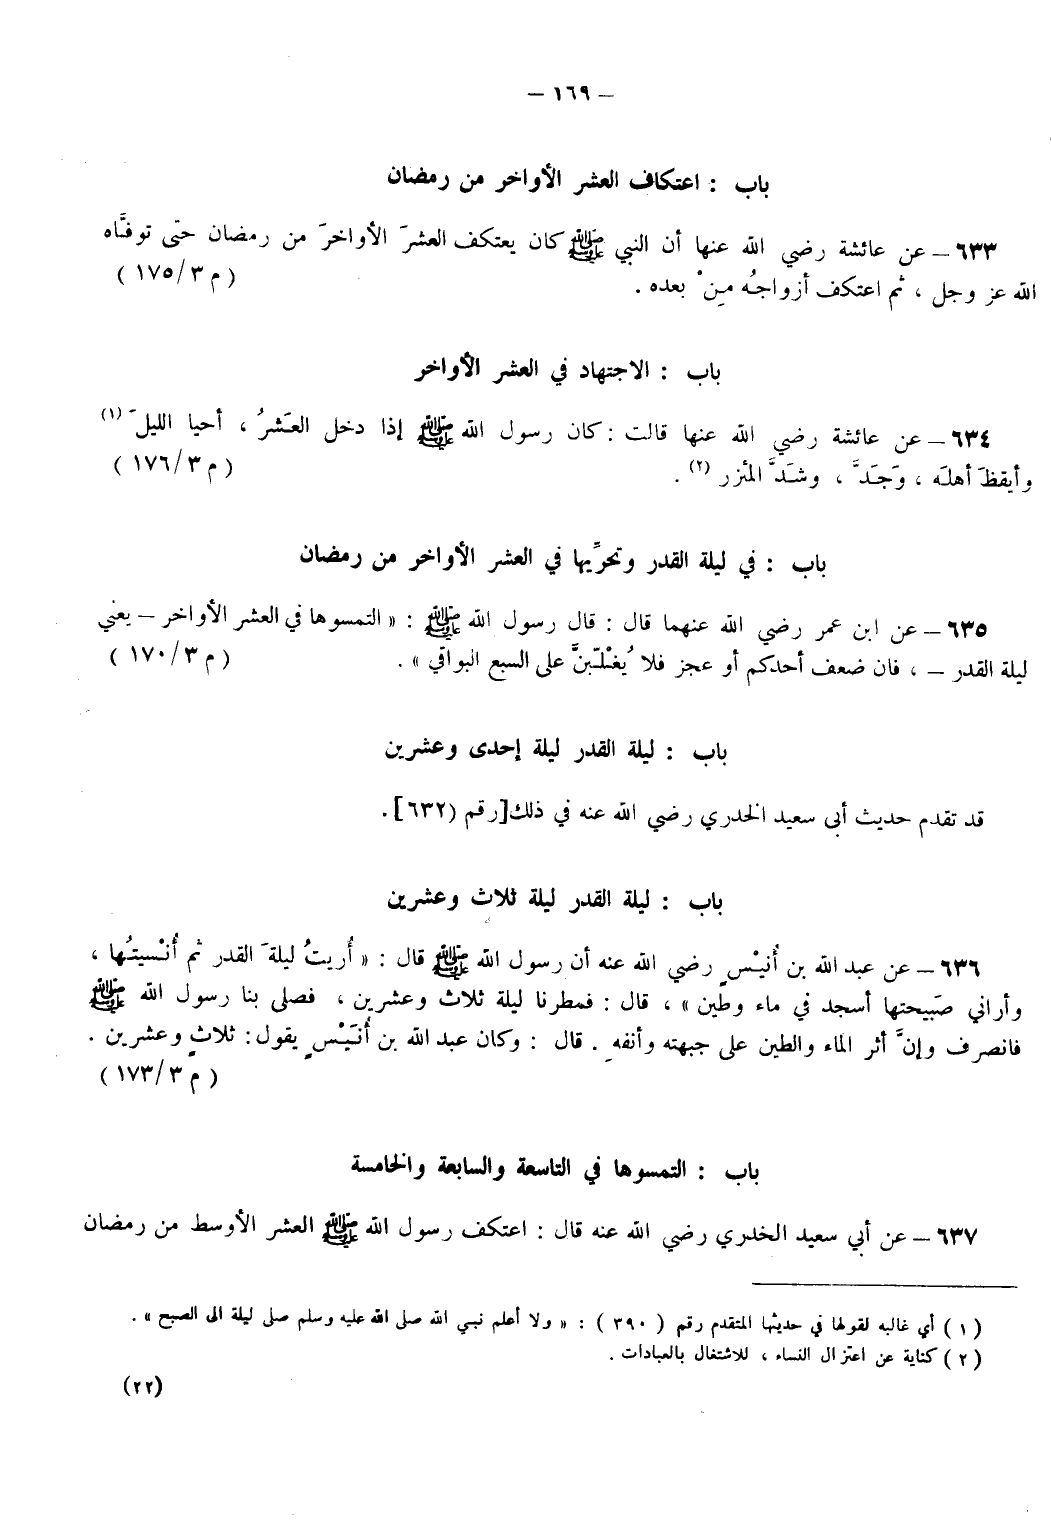 – ١٦٩ –
باب : اعتكاف العشر الأواخر من رمضان
٦٣٣ – عن عائشة رضي الله عنها أن النبي ﷺ كان يعتكف العشرَ الأواخرَ من رمضان حتى توفَّاه
الله عز وجل ، ثم اعتكف أزواجُه مِنْ بعده . ( م ٣/١٧٥ )
باب : الاجتهاد في العشر الأواخر
٦٣٤ – عن عائشة رضي الله عنها قالت : كان رسول الله ﷺ إذا دخل العَشرُ ، أحيا الليلَ (١)
وأيقظَ أهلَه ، وَجَدَّ ، وشَدَّ المئزر (٢) . ( م ٣/١٧٦ )
باب : في ليلة القدر وتحرِّيها في العشر الأواخر من رمضان
٦٣٥ – عن ابن عمر رضي الله عنهما قال : قال رسول الله ﷺ : « التمسوها في العشر الأواخر – يعني
ليلة القدر – ، فان ضعف أحدكم أو عجز فلا يُغْلَبَنَّ على السبع البواقي » . ( م ٣/١٧٠ )
باب : ليلة القدر ليلة إحدى وعشرين
قد تقدم حديث أبي سعيد الخدري رضي الله عنه في ذلك [رقم (٦٣٢] .
باب : ليلة القدر ليلة ثلاث وعشرين
٦٣٦ – عن عبد الله بن أُنَيْسٍ رضي الله عنه أن رسول الله ﷺ قال : « أُريتُ ليلةَ القدر ثم أُنْسيتُها ،
وأراني صَبيحتها أسجد في ماء وطين » ، قال : فمطرنا ليلة ثلاث وعشرين ، فصلى بنا رسول الله ﷺ
فانصرف وإنَّ أثر الماء والطين على جبهته وأنفه . قال : وكان عبد الله بن أُنَيْسٍ يقول : ثلاثٍ وعشرين .
( م ٣/١٧٣ )
باب : التمسوها في التاسعة والسابعة والخامسة
٦٣٧ – عن أبي سعيد الخدري رضي الله عنه قال : اعتكف رسول الله ﷺ العشر الأوسط من رمضان
( ١ ) أي غالبه لقولها في حديثها المتقدم رقم ( ٣٩٠ ) : « ولا أعلم نبي الله صلى الله عليه وسلم صلى ليلة الى الصبح » .
( ٢ ) كناية عن اعتزال النساء ، للاشتغال بالعبادات .
(٢٢)